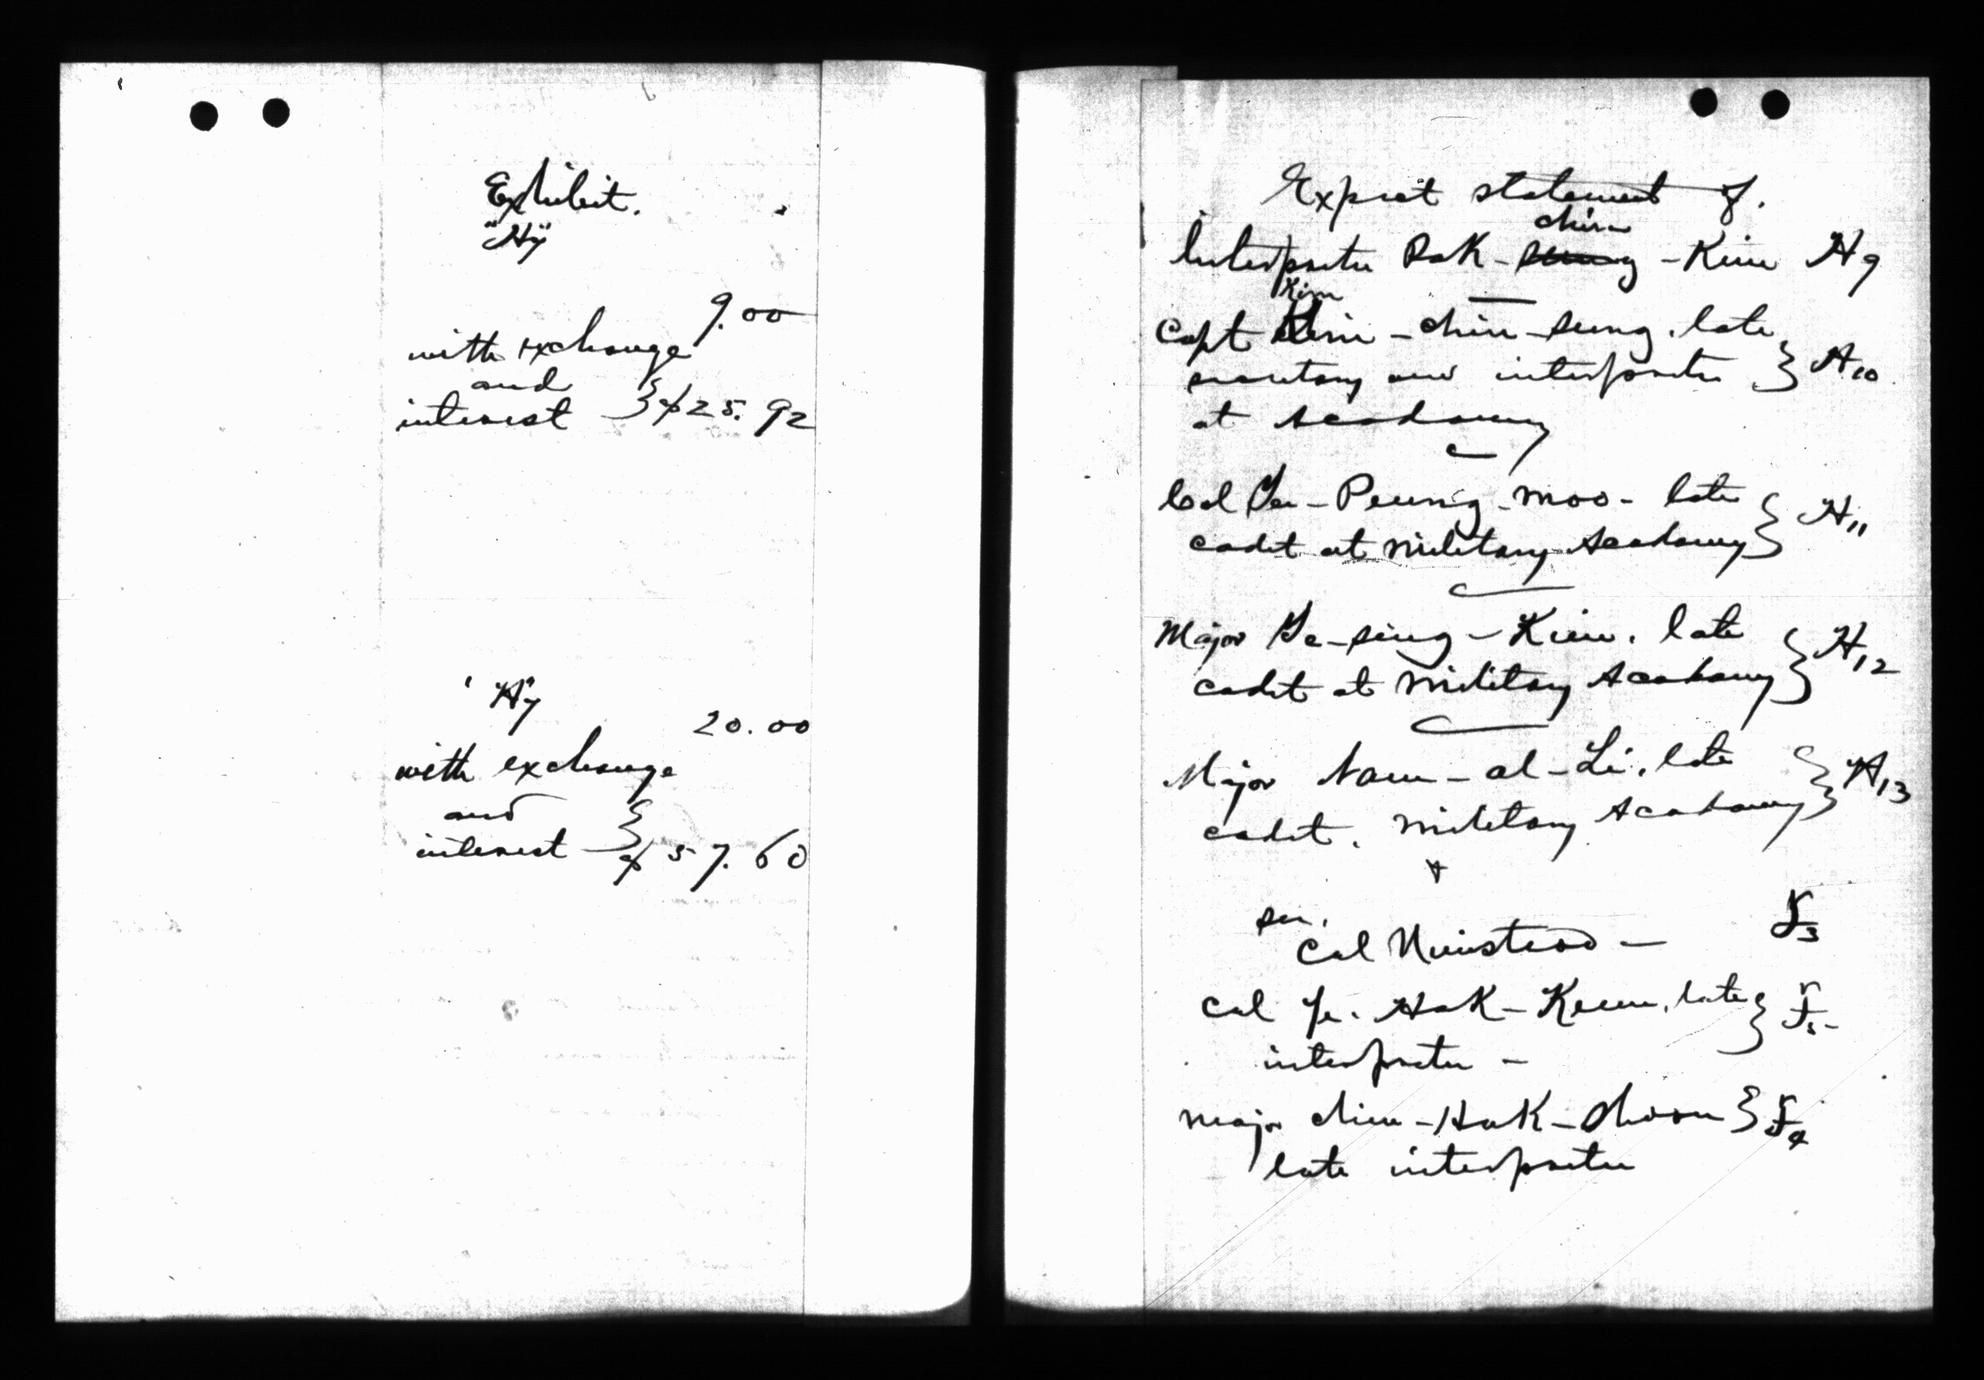 Exhibit.
"H7"
9.00
with exchange
and
interest } $25.92
"H7
20.00
with exchange
and
interest } $57.60
Expert statement of.
chin
Interpreter Pak - - Kim H9
Kim
Capt - chin - sung. late
secretary and interpreter } H10
at Academy
Col Ye - Peung - moo - late
cadet at Military Academy } H11
Major Ye - sing - Kim. late
cadet at Military Academy } H12
Major Nam - al - Li. late
cadet. Military Academy } H13
Col Nienstead - 3
Col Ye. Hak - Keun, late
interpreter -
Major chin - Hak - Choon } 4
late interpreter